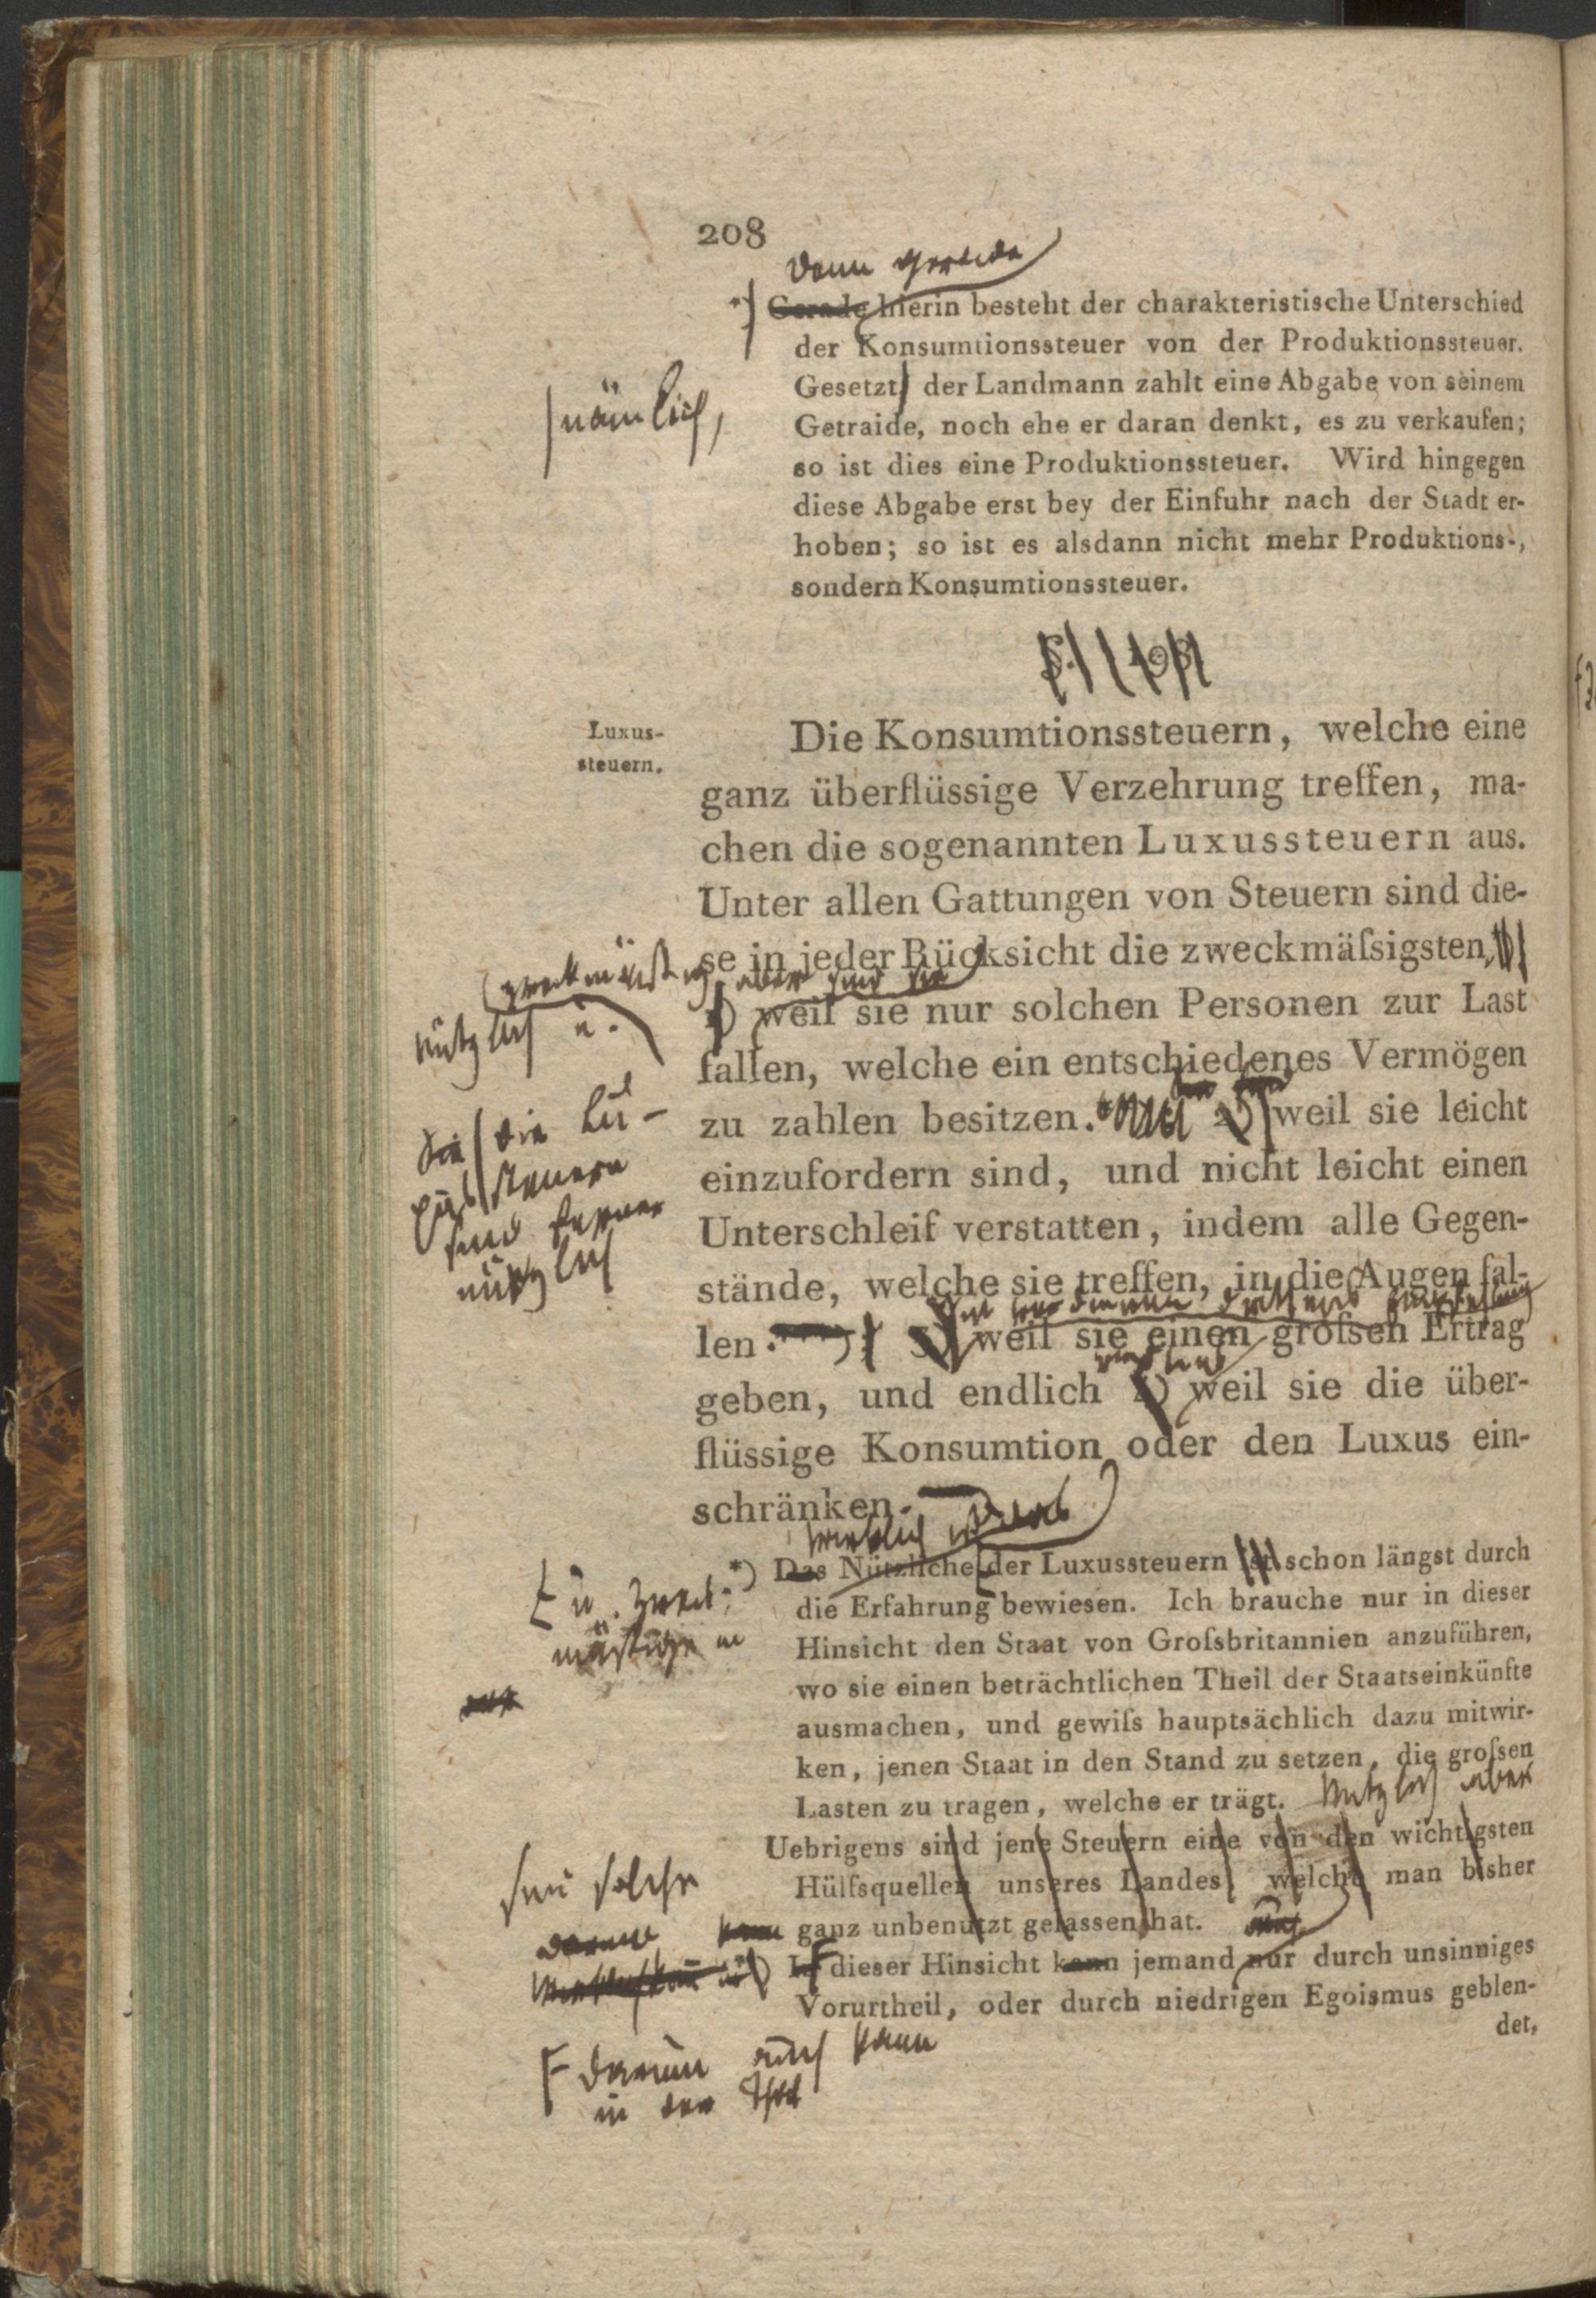 208
denn gerade
*) Gerade hierin besteht der charakteristische Unterschied
der Konsumtionssteuer von der Produktionssteuer.
nämlich,
Gesetzt, der Landmann zahlt eine Abgabe von seinem
Getraide, noch ehe er daran denkt, es zu verkaufen;
so ist dies eine Produktionssteuer. Wird hingegen
diese Abgabe erst bey der Einfuhr nach der Stadt er-
hoben; so ist es alsdann nicht mehr Produktions-,
sondern Konsumtionssteuer.
Luxus-
steuern.
Die Konsumtionssteuern, welche eine
ganz überflüssige Verzehrung treffen, ma-
chen die sogenannten Luxussteuern aus.
Unter allen Gattungen von Steuern sind die-
se in jeder Rücksicht die zweckmäſsigsten,
zweckmäßig aber sind sie
nützlich u.
1) weil sie nur solchen Personen zur Last
fallen, welche ein entschiedenes Vermögen
zu zahlen besitzen. 2) weil sie leicht
die Lu-
xussteuern
sind ferner
nützlich
einzufordern sind, und nicht leicht einen
Unterschleif verstatten, indem alle Gegen-
stände, welche sie treffen, in die Augen fal-
len. 3) weil sie einen groſsen Ertrag
geben, und endlich 4) weil sie die über-
flüssige Konsumtion oder den Luxus ein-
schränken.
*) Das Nützliche der Luxussteuern ist schon längst durch
u. zweck-
mäßige
die Erfahrung bewiesen. Ich brauche nur in dieser
Hinsicht den Staat von Groſsbritannien anzuführen,
wo sie einen beträchtlichen Theil der Staatseinkünfte
ausmachen, und gewiſs hauptsächlich dazu mitwir-
ken, jenen Staat in den Stand zu setzen, die groſsen
Lasten zu tragen, welche er trägt. Nützlich aber
Uebrigens sind jene Steuern eine von den wichtigsten
Hülfsquellen unseres Landes, welche man bisher
ganz unbenutzt gelassen hat.
In dieser Hinsicht kann jemand nur durch unsinniges
Vorurtheil, oder durch niedrigen Egoismus geblen-
det,
darum auch kann
in der That